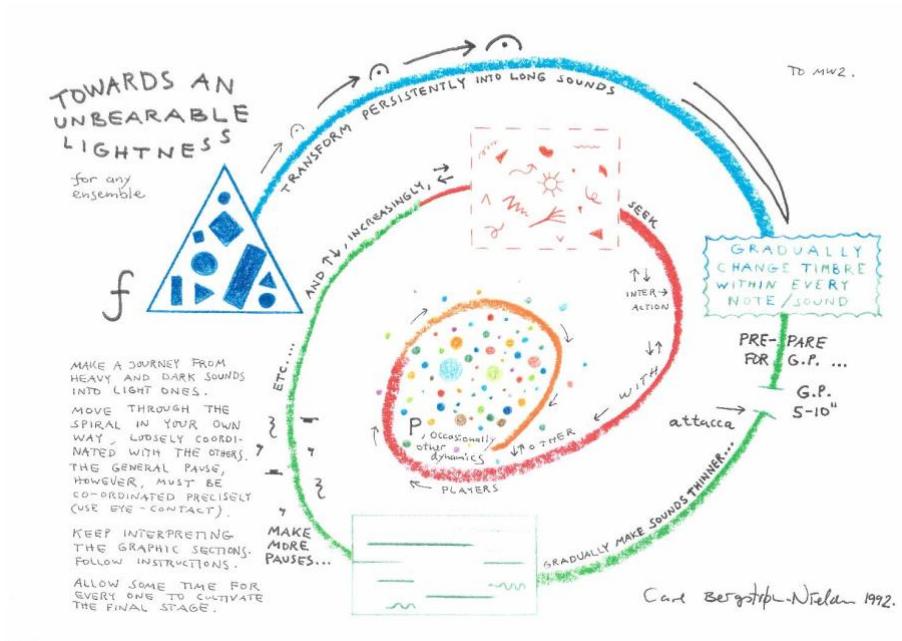 TOWARDS AN
UNBEARABLE
LIGHTNESS
for any
ensemble
TO MW2.
f
TRANSFORM PERSISTENTLY INTO LONG SOUNDS
GRADUALLY
CHANGE TIMBRE
WITHIN EVERY
NOTE/SOUND
PRE-PARE
FOR G.P. ...
G.P.
5-10"
attacca
GRADUALLY MAKE SOUNDS THINNER...
MAKE
MORE
PAUSES...
ETC....
AND ↑↓, INCREASINGLY,
SEEK
INTER→
ACTION
WITH
OTHER
PLAYERS
P, OCCASIONALLY
other
dynamics
MAKE A JOURNEY FROM
HEAVY AND DARK SOUNDS
INTO LIGHT ONES.
MOVE THROUGH THE
SPIRAL IN YOUR OWN
WAY, LOOSELY COORDI-
NATED WITH THE OTHERS.
THE GENERAL PAUSE,
HOWEVER, MUST BE
CO-ORDINATED PRECISELY
(USE EYE-CONTACT).
KEEP INTERPRETING
THE GRAPHIC SECTIONS.
FOLLOW INSTRUCTIONS.
ALLOW SOME TIME FOR
EVERY ONE TO CULTIVATE
THE FINAL STAGE.
Carl Bergstrøm-Nielsen 1992.